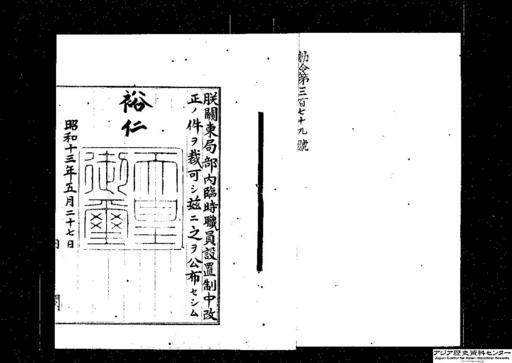 勅令第三百七十九號
朕關東局部内臨時職員設置制中改
正ノ件ヲ裁可シ茲ニ之ヲ公布セシム
裕仁
天皇
御璽
昭和十三年五月二十七日
アジア歴史資料センター
Japan Center for Asian Historical Records